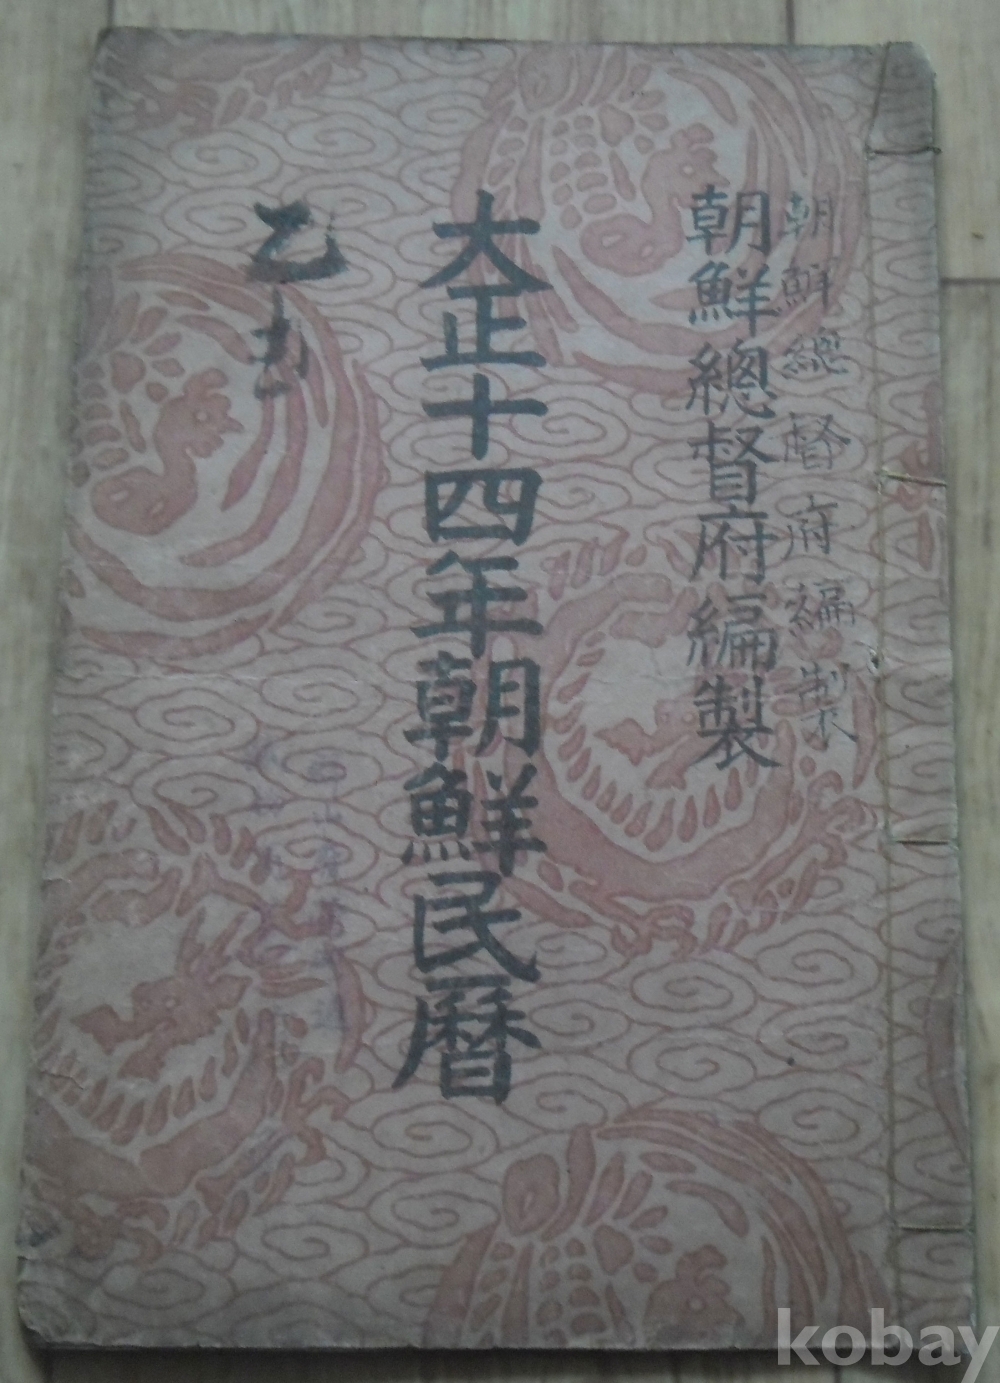 朝鮮總督府編製
朝鮮總督府編製
大正十四年朝鮮民曆
乙丑
kobay